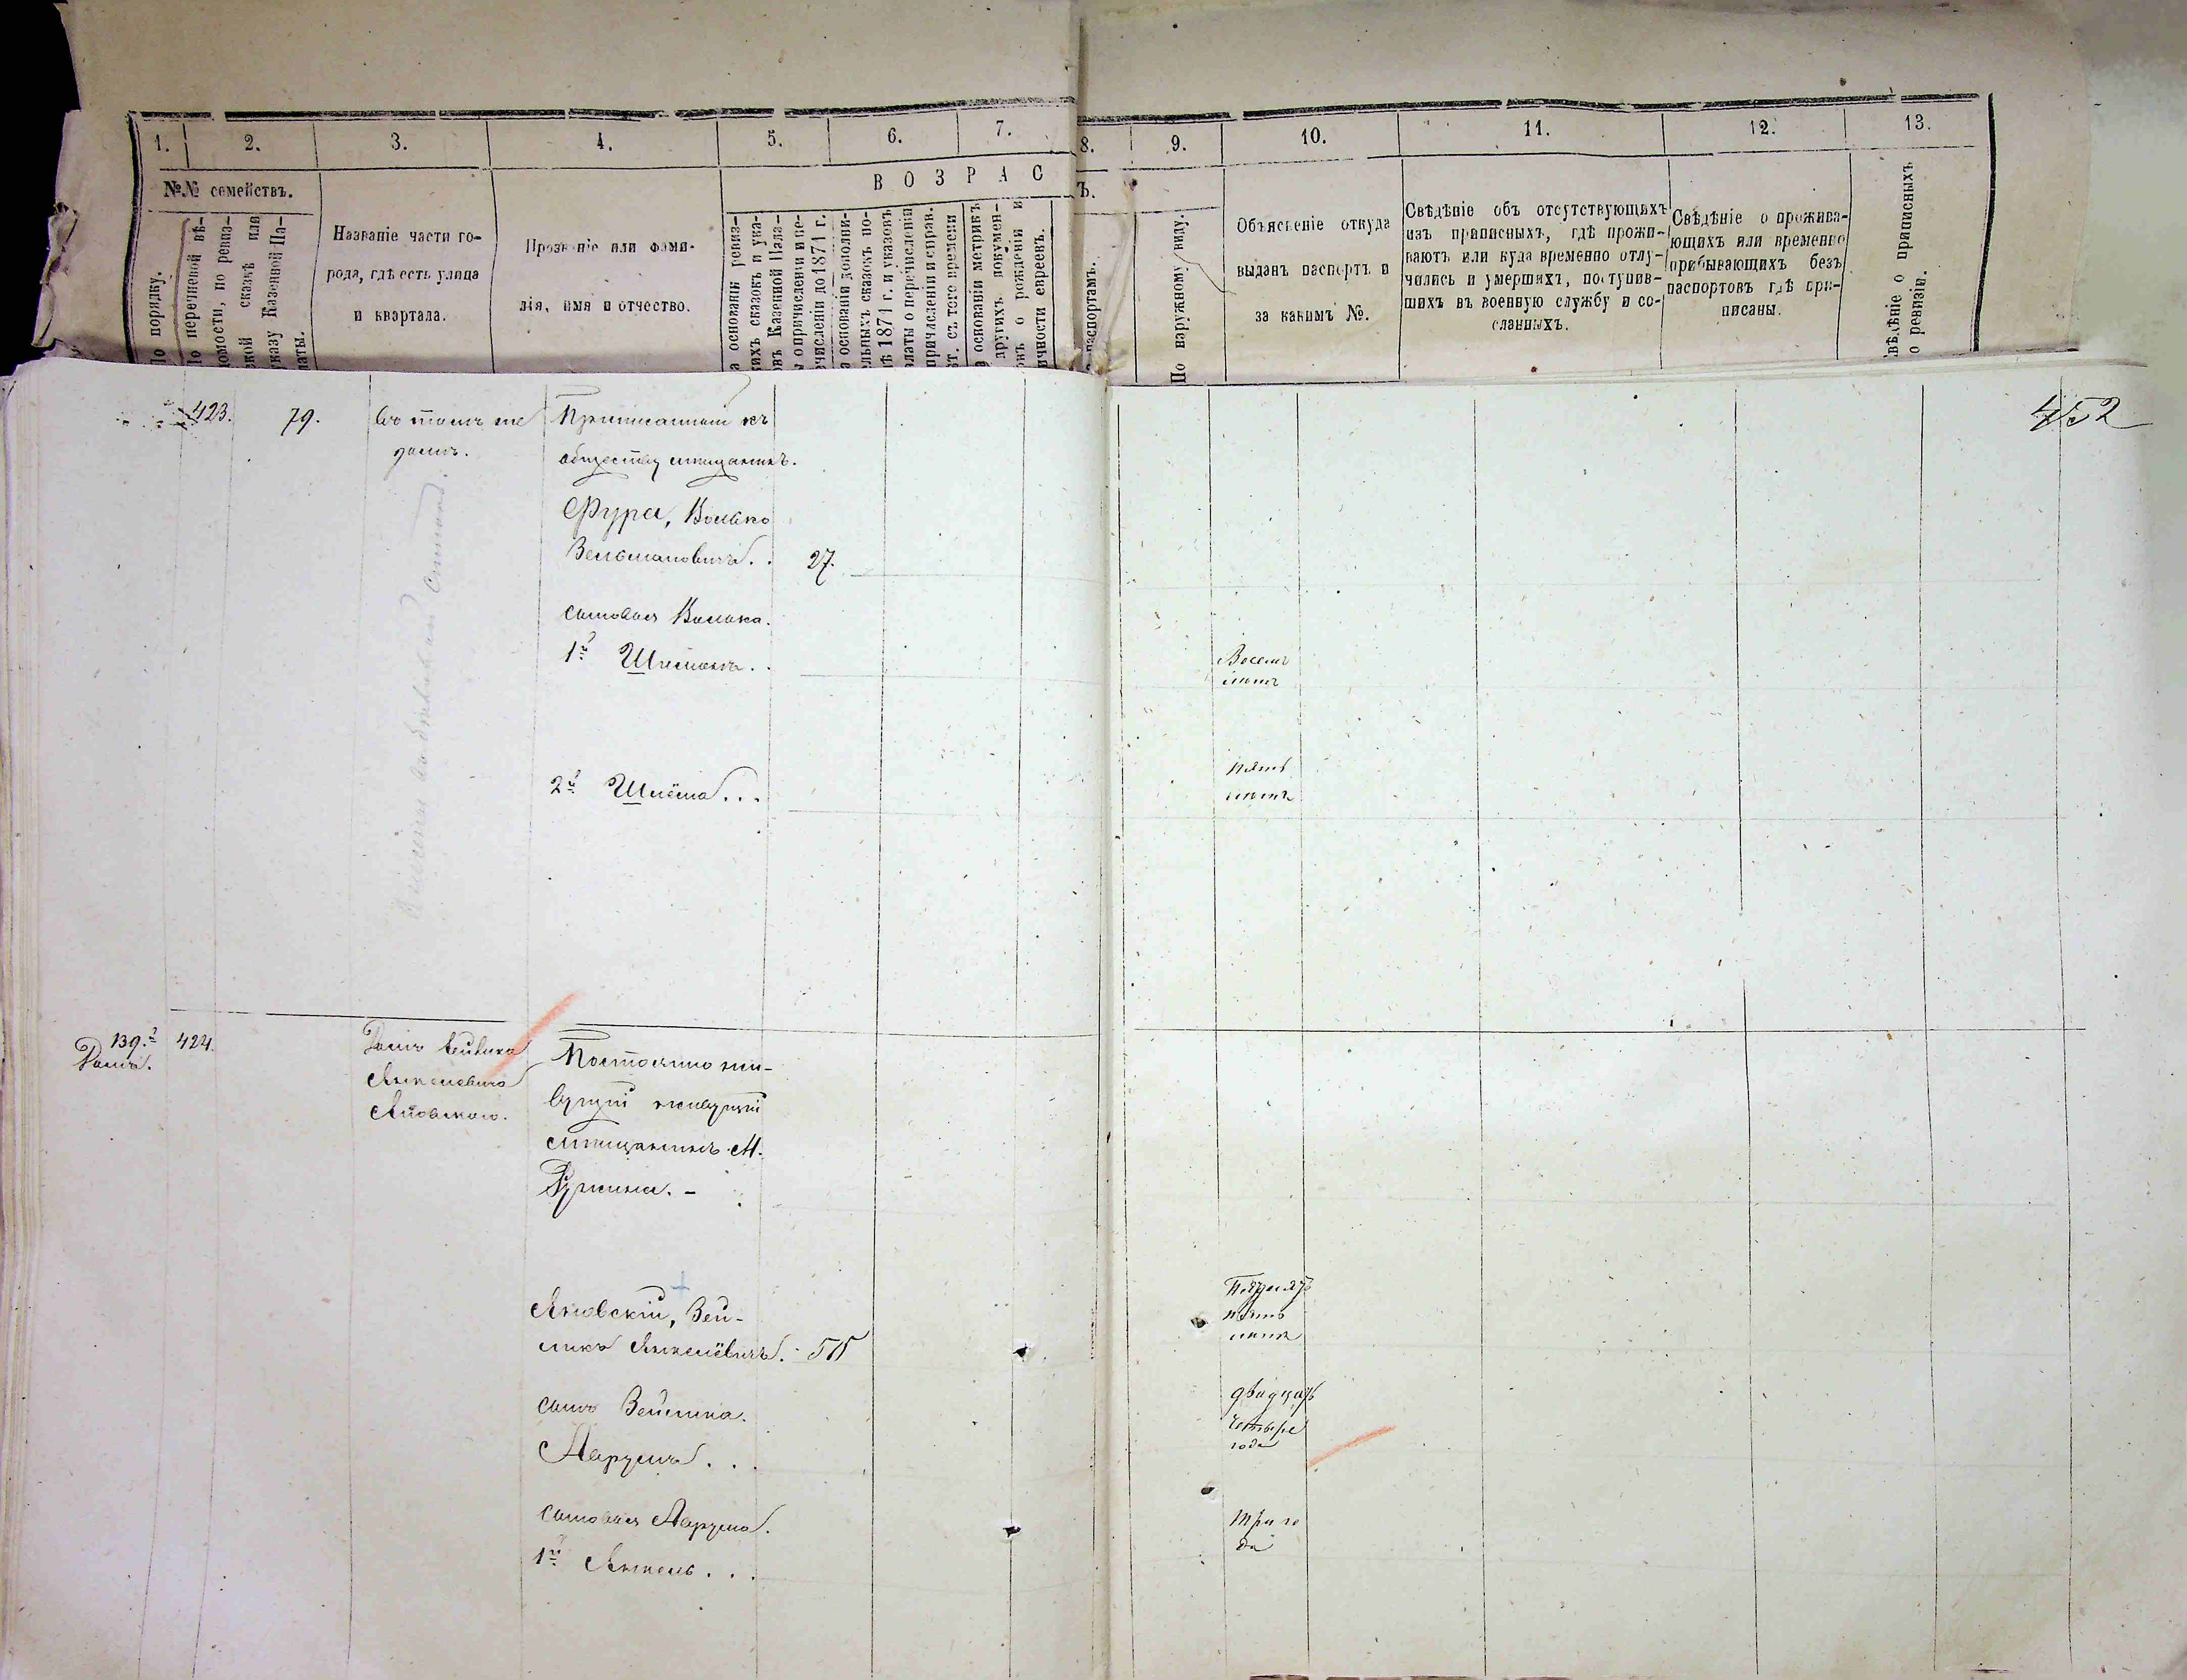 1. 2. 3. 4. 5. 6. 7. 8. 9. 10. 11. 12. 13.
№№ семействъ.
ВОЗРАС
Ъ.
По порядку.
По перечневой вѣ-
домости, по ревиз-
ской сказкѣ или
указу Казенной Па-
латы.
Названіе части го-
рода, гдѣ есть улица
и квартала.
Прозваніе или фами-
лія, имя и отчество.
а основаніи ревиз-
ихъ сказокъ и ука-
овъ Казенной Пала-
ы о причисленіи и пе-
ечисленіи до 1871 г.
а основаніи дополни-
ельныхъ сказокъ по-
лѣ 1871 г. и указовъ
алаты о перечисленіи
причисленіи и справ.
ѣт. съ того времени
а основаніи метрикъ
другихъ докумен-
окъ о рожденіи и
ичности евреевъ.
паспортамъ.
По наружному виду.
Объясненіе откуда
выданъ паспортъ и
за какимъ №.
Свѣдѣніе объ отсутствующихъ
изъ приписныхъ, гдѣ прожи-
ваютъ или куда временно отлу-
чились и умершихъ, поступив-
шихъ въ военную службу и со-
сланныхъ.
Свѣдѣніе о прожива-
ющихъ или временно
прибывающихъ безъ
паспортовъ гдѣ при-
писаны.
вѣдѣніе о приписныхъ
о ревизіи.
452
423. 79. Въ томъ же
домѣ.
Приписанный къ
обществу мѣщанинъ.
Фура, Волько
Зельмановичъ. . 27.
сыновья Волька.
1й Шлемка. . Восемь
лѣтъ
2й Шлёма. . . пять
лѣтъ
139й
Домъ.
424.
Домъ
Янкелевича
Постоянно жи-
вущій живущій
мѣщанинъ М.
Янковскій, Зей-
ликъ Янкелёвичъ. 55
пять
лѣтъ
сынъ Зейлика.
Аарумъ . . .
двадцать
четыре
года
сыновья Аарума.
1й Янкель . . .
три го
да